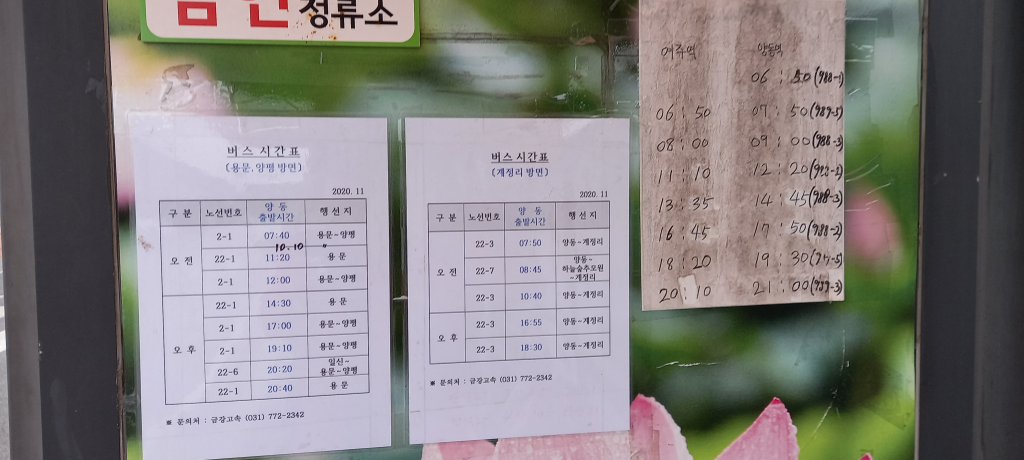 정류소
버스 시간표
(용문,양평 방면)
2020. 11
구 분 노선번호 양 동 출발시간 행 선 지
오 전 2-1 07:40 용문~양평
10.10 "
22-1 11:20 용 문
2-1 12:00 용문~양평
오 후 22-1 14:30 용 문
2-1 17:00 용문~양평
2-1 19:10 용문~양평
22-6 20:20 일신~용문~양평
22-1 20:40 용 문
※ 문의처 : 금강고속 (031) 772-2342
버스 시간표
(계정리 방면)
2020. 11
구 분 노선번호 양 동 출발시간 행 선 지
오 전 22-3 07:50 양동~계정리
22-7 08:45 양동~하늘숲추모원~계정리
22-3 10:40 양동~계정리
오 후 22-3 16:55 양동~계정리
22-3 18:30 양동~계정리
※ 문의처 : 금강고속 (031) 772-2342
여주역 양동역
06 : 50 (988-1)
06 : 50 07 : 50
08 : 00 09 : 00 (988-3)
11 : 10 12 : 20
13 : 35 14 : 45 (988-3)
16 : 45 17 : 50 (988-2)
18 : 20 19 : 30
20 : 10 21 : 00